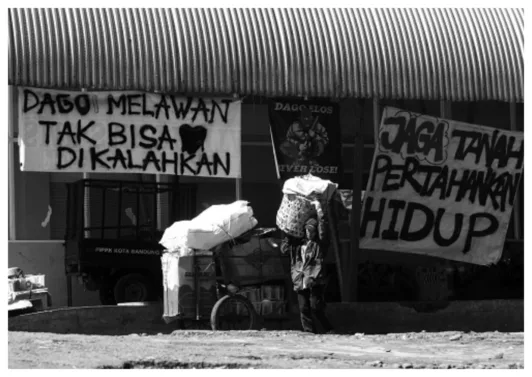 DAGO MELAWAN
TAK BISA
DIKALAHKAN
DAGO ELOS
NEVER LOSE!
JAGA TANAH
PERTAHANKAN
HIDUP